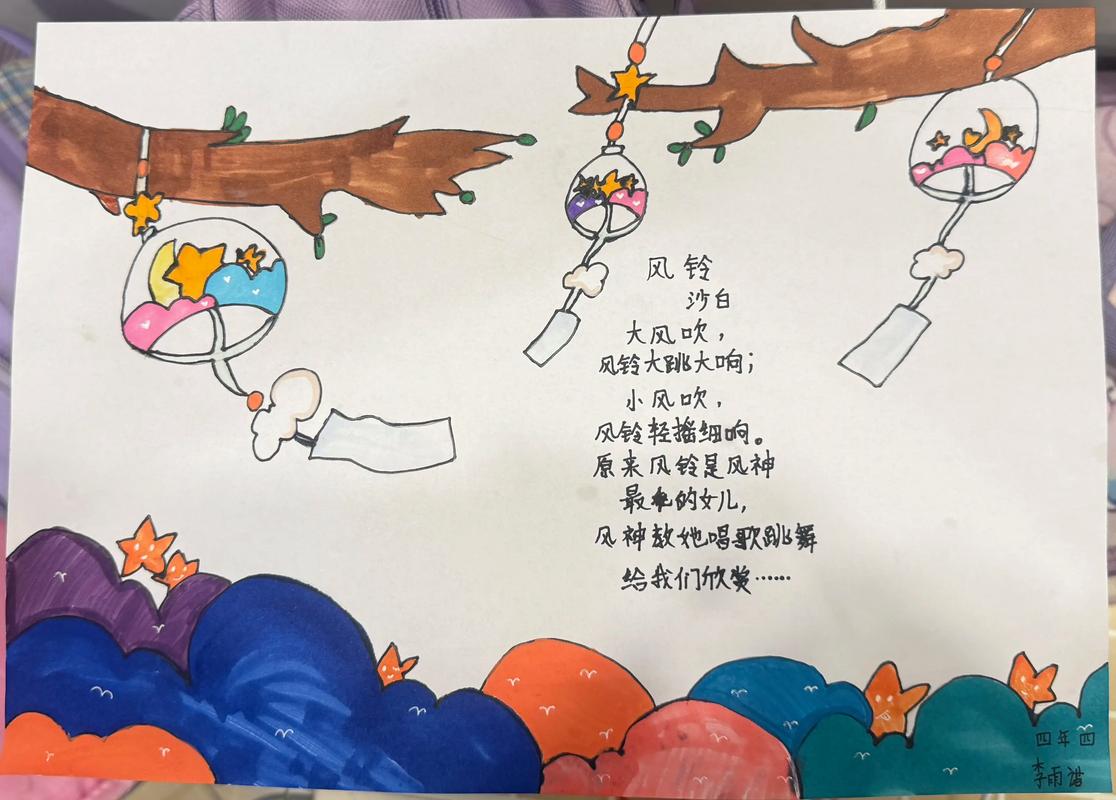 风铃
沙白
大风吹，
风铃大跳大响；
小风吹，
风铃轻摇细响。
原来风铃是风神
最的女儿，
风神教她唱歌跳舞
给我们欣赏……
四年四
李雨